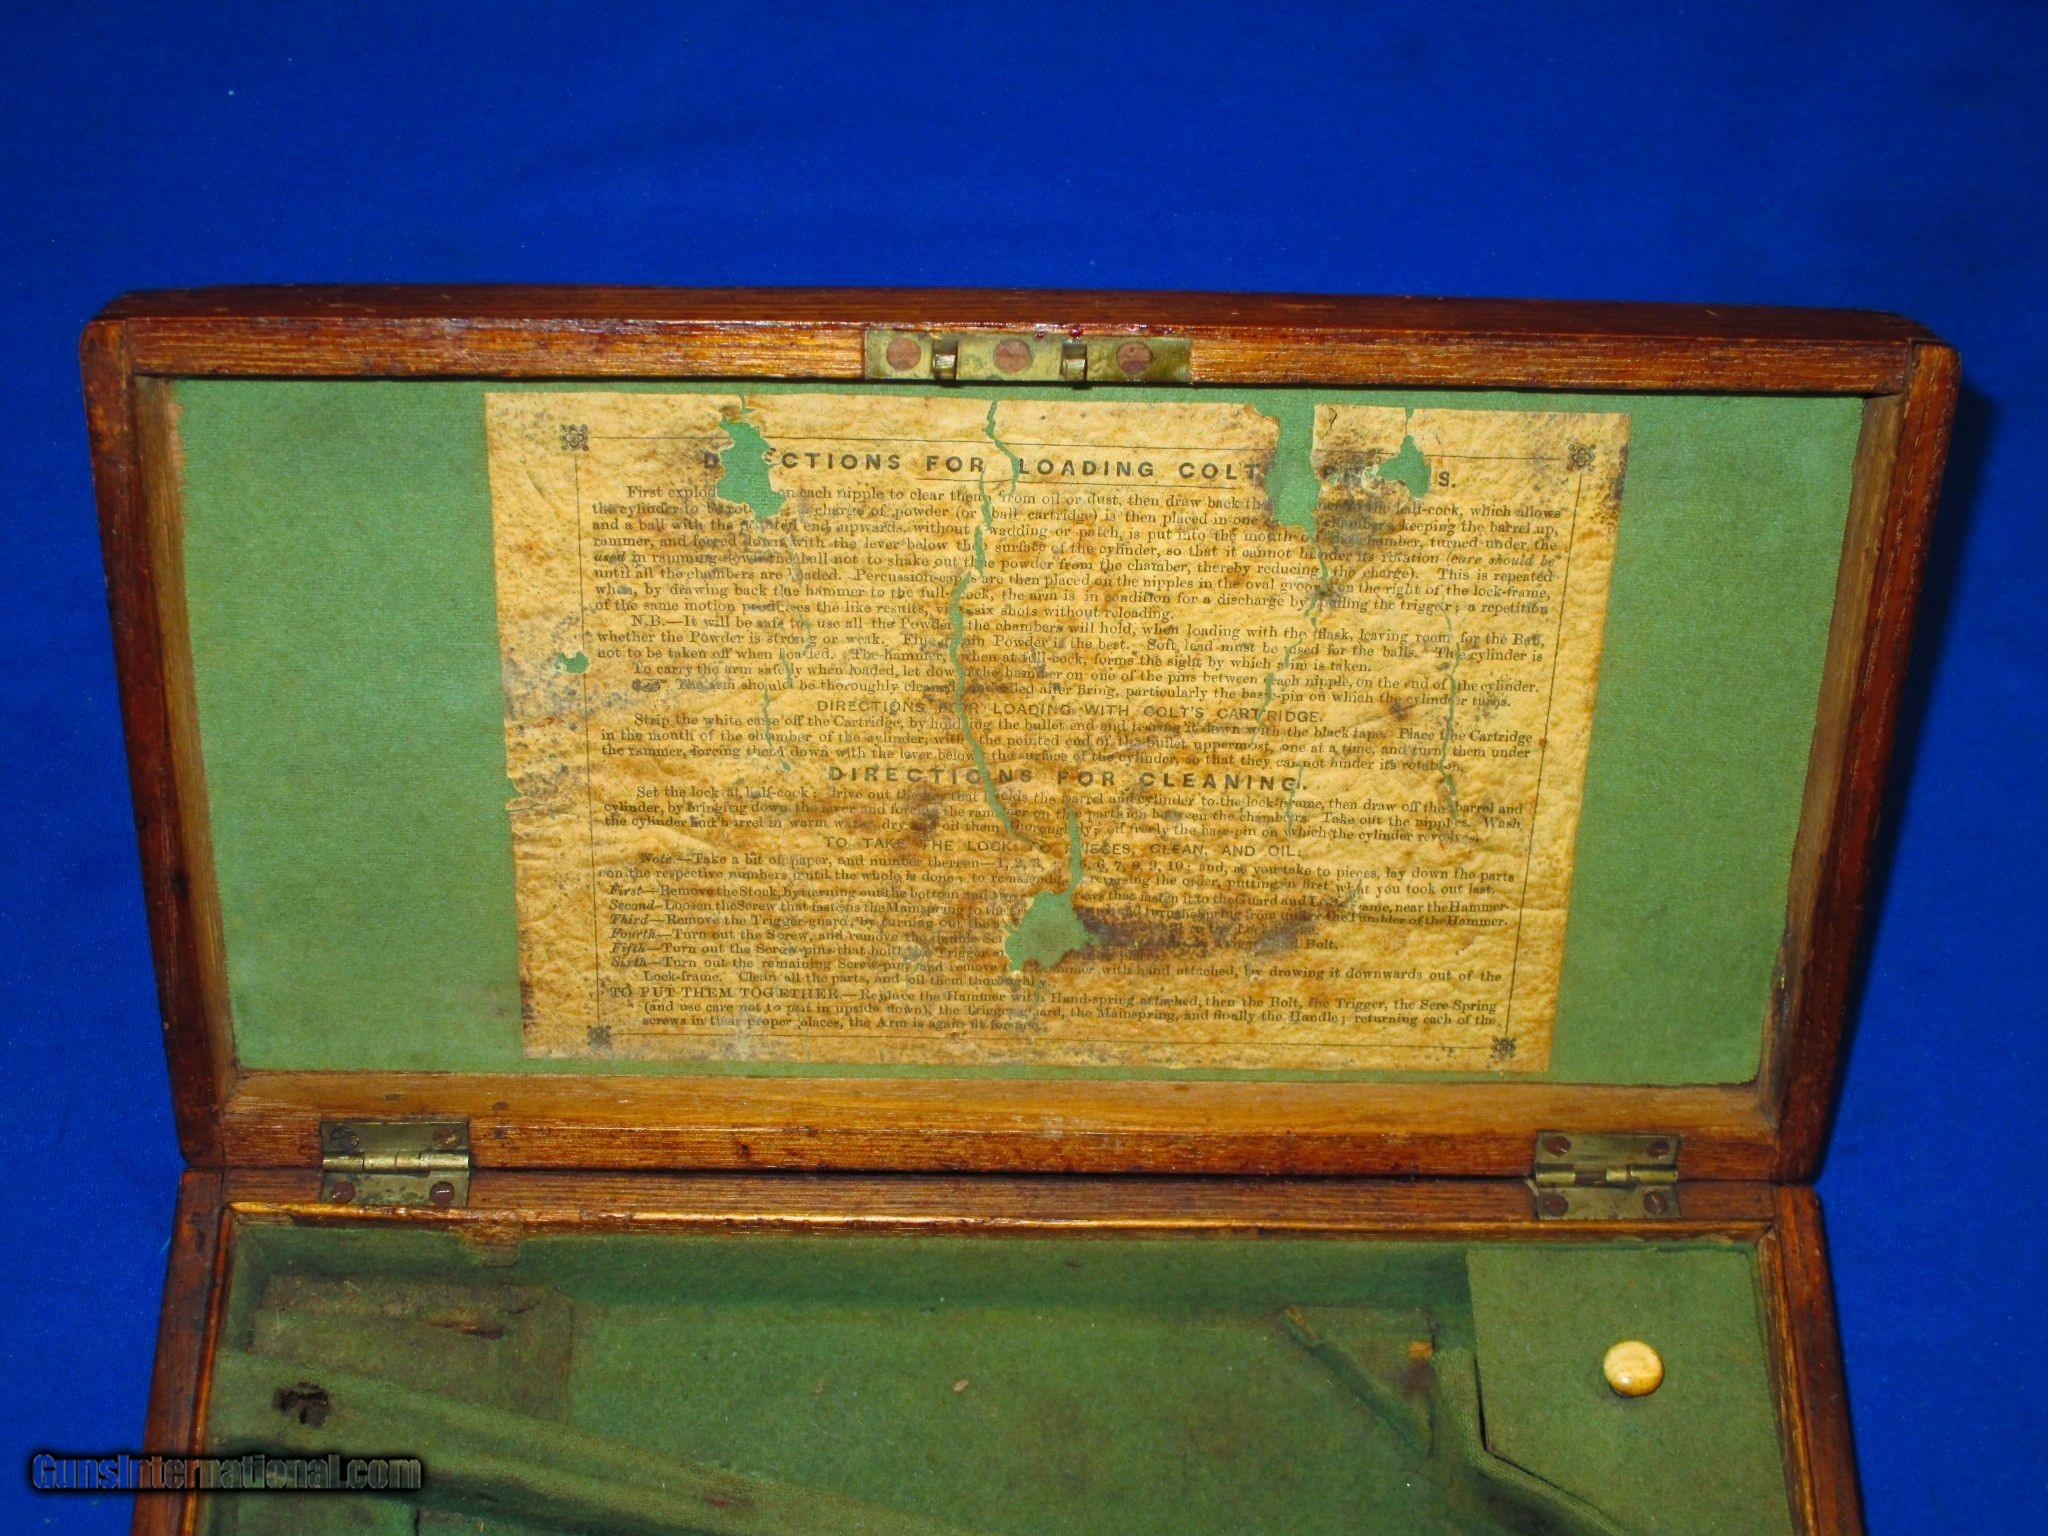 D ECTIONS FOR LOADING COLT S.
First explod on each nipple to clear them from oil or dust, then draw back the half-cock, which allows
the cylinder to be charge of powder (or ball cartridge) is then placed in one chambers, keeping the barrel up,
and a ball with the pointed end upwards, without wadding or patch, is put into the mouth of chamber, turned under the
rammer, and forced down with the lever below the surface of the cylinder, so that it cannot hinder its rotation (care should be
used in ramming down the ball not to shake out the powder from the chamber, thereby reducing the charge). This is repeated
until all the chambers are loaded. Percussion-caps are then placed on the nipples in the oval groove on the right of the lock-frame,
when, by drawing back the hammer to the full-cock, the arm is in condition for a discharge by pulling the trigger; a repetition
of the same motion produces the like results, viz. six shots without reloading.
N.B.—It will be safe to use all the Powder the chambers will hold, when loading with the flask, leaving room for the Ball,
whether the Powder is strong or weak. Fine grain Powder is the best. Soft lead must be used for the balls. The cylinder is
not to be taken off when loaded. The hammer, when at full-cock, forms the sight by which aim is taken.
To carry the arm safely when loaded, let down the hammer on one of the pins between each nipple, on the end of the cylinder.
☞ The arm should be thoroughly cleaned and oiled after firing, particularly the base-pin on which the cylinder turns.
DIRECTIONS FOR LOADING WITH COLT'S CARTRIDGE.
Strip the white case off the Cartridge, by holding the bullet end and tearing it down with the black tape. Place the Cartridge
in the mouth of the chamber of the cylinder, with the pointed end of the bullet uppermost, one at a time, and turn them under
the rammer, forcing them down with the lever below the surface of the cylinder, so that they cannot hinder its rotation.
DIRECTIONS FOR CLEANING.
Set the lock at half-cock; drive out the that holds the barrel and cylinder to the lock-frame, then draw off the barrel and
cylinder, by bringing down the lever and forcing the rammer on the partition between the chambers. Take out the nipples. Wash
the cylinder and barrel in warm water, dry and oil them thoroughly; oil freely the base-pin on which the cylinder revolves.
TO TAKE THE LOCK TO PIECES, CLEAN, AND OIL.
Note.—Take a bit of paper, and number thereon—1, 2, 3, 4, 5, 6, 7, 8, 9, 10; and, as you take to pieces, lay down the parts
on the respective numbers until the whole is done; to re-assemble, reversing the order, putting in first what you took out last.
First—Remove the Stock, by turning out the bottom and two screws that fasten it to the Guard and Lock-frame, near the Hammer.
Second—Loosen the Screw that fastens the Mainspring to the and turn the Spring from under the Tumbler of the Hammer.
Third—Remove the Trigger-guard, by turning out the
Fourth—Turn out the Screw, and remove the double Bolt.
Fifth—Turn out the Screw-pins that hold the Trigger
Sixth—Turn out the remaining Screw-pin, and remove the Hammer with hand attached, by drawing it downwards out of the
Lock-frame. Clean all the parts, and oil them thoroughly.
TO PUT THEM TOGETHER.—Replace the Hammer with Hand-spring attached, then the Bolt, the Trigger, the Sere-Spring
(and use care not to put in upside down), the Trigger-guard, the Mainspring, and finally the Handle; returning each of the
screws in their proper places, the Arm is again fit for use.
GunsInternational.com